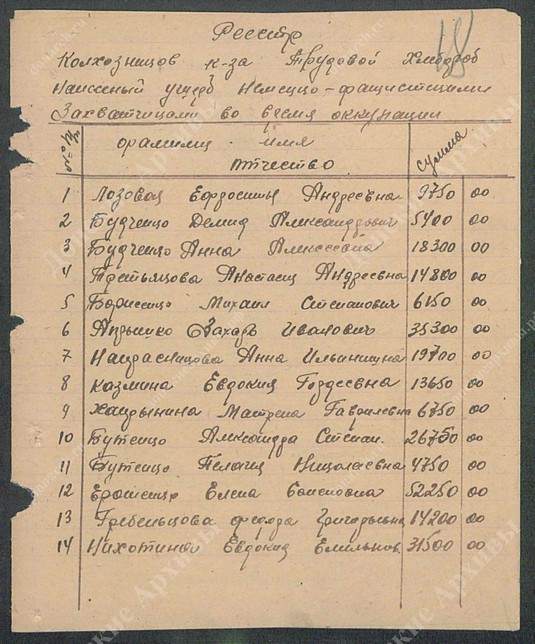 Реестр
18
Колхозников к-за Трудовой Хлебороб
Нанесеный ущерб Немецко-фашистскими
Захватчицами во время оккупации
№ п/п фамилия имя отчество сумма
1 Лозовая Ефросиния Андреевна 9750 00
2 Будченко Демид Александрович 5400 00
3 Будченко Анна Алексеевна 18300 00
4 Третьякова Анастасия Андреевна 14800 00
5 Борисенко Михаил Степанович 6150 00
6 Захар Иванович 35300 00
7 Анна Ильинишна 19700 00
8 Казмина Евдокия Гордеевна 13650 00
9 Матрена Гавриленна 6750 00
10 Бутенко Александра Степан. 26750 00
11 Бутенко Пелагия Николаевна 4750 00
12 Елена 52250 00
13 Гребенькова Григорьевна 14200 00
14 Евдокия Емильнов. 31500 00